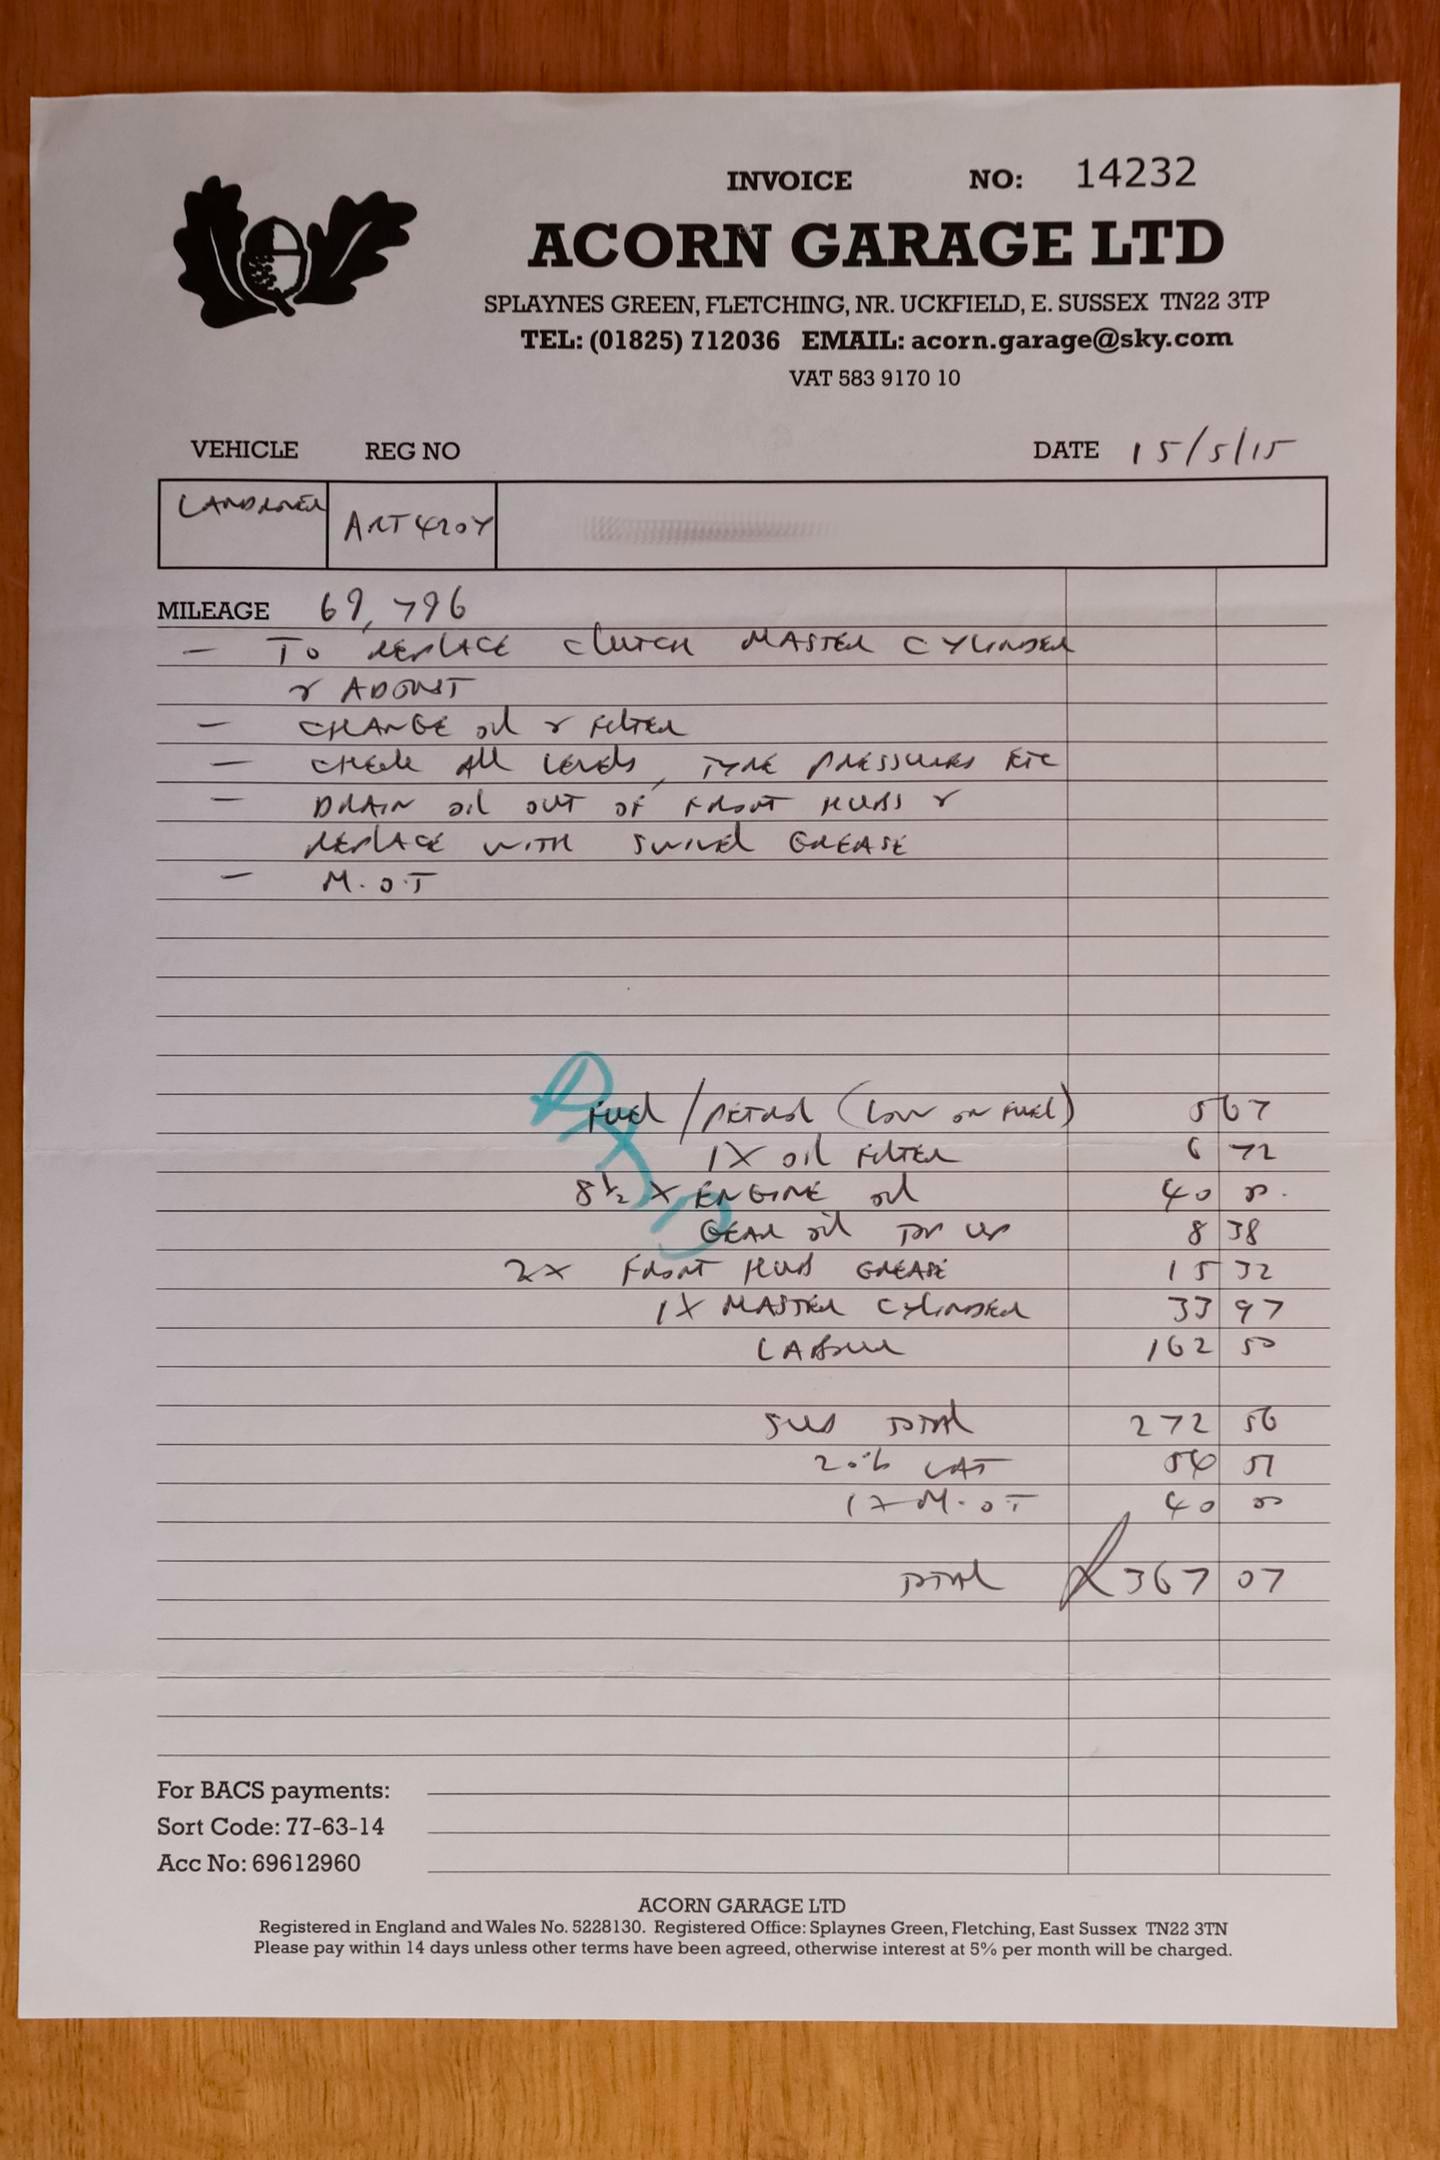 INVOICE NO: 14232
ACORN GARAGE LTD
SPLAYNES GREEN, FLETCHING, NR. UCKFIELD, E. SUSSEX TN22 3TP
TEL: (01825) 712036 EMAIL: acorn.garage@sky.com
VAT 583 9170 10
VEHICLE REG NO DATE 15/5/15
LANDROVER ART420Y
MILEAGE 69,796
- TO REPLACE CLUTCH MASTER CYLINDER
& ADJUST
- CHANGE OIL & FILTER
- CHECK ALL LEVELS, TYRE PRESSURES ETC
- DRAIN OIL OUT OF FRONT HUBS &
REPLACE WITH SWIVEL GREASE
- M.O.T
FUEL/PETROL (LOW ON FUEL) 5 67
1X OIL FILTER 6 72
8½ X ENGINE OIL 40 00
GEAR OIL TOP UP 8 38
2X FRONT HUB GREASE 15 32
1X MASTER CYLINDER 33 97
LABOUR 162 50
SUB TOTAL 272 56
20% VAT 54 51
1X M.O.T 40 00
TOTAL £367 07
For BACS payments:
Sort Code: 77-63-14
Acc No: 69612960
ACORN GARAGE LTD
Registered in England and Wales No. 5228130. Registered Office: Splaynes Green, Fletching, East Sussex TN22 3TN
Please pay within 14 days unless other terms have been agreed, otherwise interest at 5% per month will be charged.